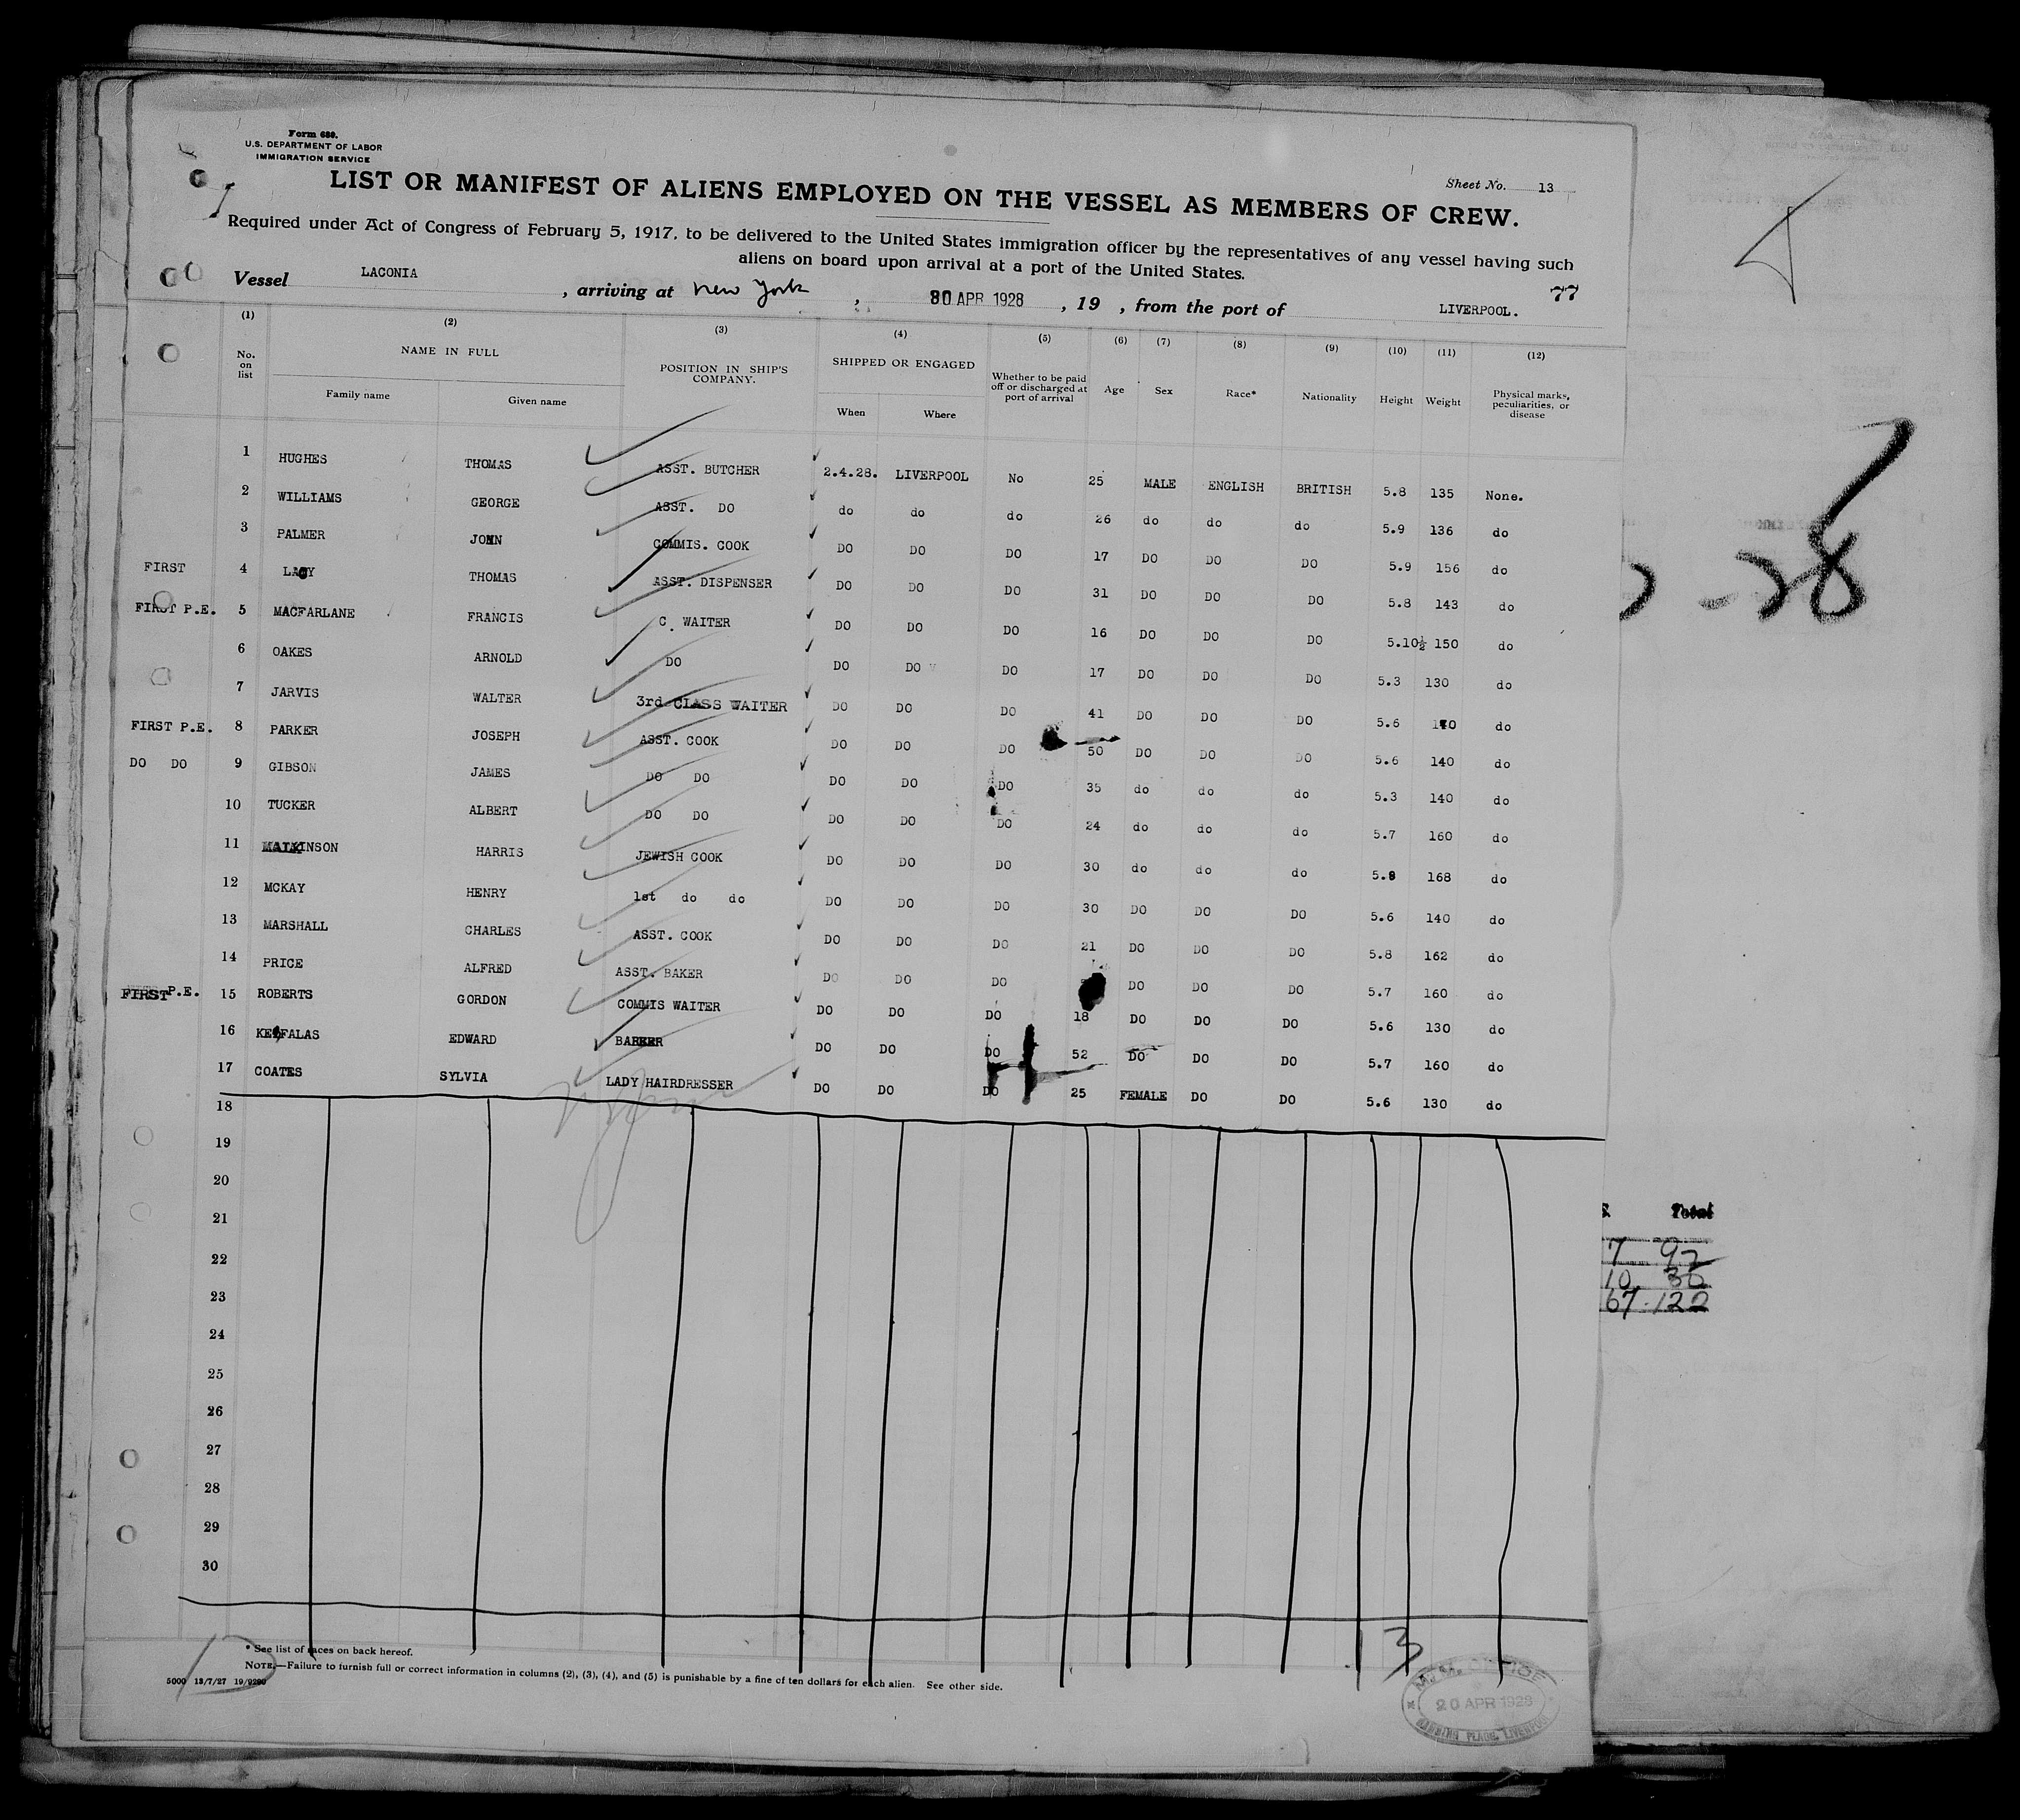 Form 689.
U.S. DEPARTMENT OF LABOR
IMMIGRATION SERVICE
Sheet No. 13
LIST OR MANIFEST OF ALIENS EMPLOYED ON THE VESSEL AS MEMBERS OF CREW.
Required under Act of Congress of February 5, 1917, to be delivered to the United States immigration officer by the representatives of any vessel having such
aliens on board upon arrival at a port of the United States.
77
Vessel LACONIA, arriving at New York, 30 APR 1928, 19 , from the port of LIVERPOOL.
(1) (2) (3) (4) (5) (6) (7) (8) (9) (10) (11) (12)
No. on list NAME IN FULL POSITION IN SHIP'S COMPANY. SHIPPED OR ENGAGED Whether to be paid off or discharged at port of arrival Age Sex Race* Nationality Height Weight Physical marks, peculiarities, or disease
Family name Given name When Where
1 HUGHES THOMAS ASST. BUTCHER 2.4.28. LIVERPOOL No 25 MALE ENGLISH BRITISH 5.8 135 None.
2 WILLIAMS GEORGE ASST. DO do do do 26 do do do 5.9 136 do
3 PALMER JOHN COMMIS. COOK DO DO DO 17 DO DO DO 5.9 156 do
FIRST 4 LACY THOMAS ASST. DISPENSER DO DO DO 31 DO DO DO 5.8 143 do
FIRST P.E. 5 MACFARLANE FRANCIS C. WAITER DO DO DO 16 DO DO DO 5.10½ 150 do
6 OAKES ARNOLD DO DO DO DO 17 DO DO DO 5.3 130 do
7 JARVIS WALTER 3rd CLASS WAITER DO DO DO 41 DO DO DO 5.6 do
FIRST P.E. 8 PARKER JOSEPH ASST. COOK DO DO DO 50 DO DO DO 5.6 140 do
DO DO 9 GIBSON JAMES DO DO DO DO DO 35 do do do 5.3 140 do
10 TUCKER ALBERT DO DO DO DO DO 24 do do do 5.7 160 do
11 HARRIS JEWISH COOK DO DO DO 30 do do do 168 do
12 MCKAY HENRY 1st do do DO DO DO 30 DO DO DO 5.6 140 do
13 MARSHALL CHARLES ASST. COOK DO DO DO 21 DO DO DO 5.8 162 do
14 PRICE ALFRED ASST. BAKER DO DO DO DO DO DO 5.7 160 do
FIRST P.E. 15 ROBERTS GORDON COMMIS WAITER DO DO DO 18 DO DO DO 5.6 130 do
16 EDWARD DO DO DO 52 DO DO DO 5.7 160 do
17 COATES SYLVIA LADY HAIRDRESSER DO DO DO 25 FEMALE DO DO 5.6 130 do
18
19
20
21
22
23
24
25
26
27
28
29
30
* See list of races on back hereof.
NOTE.—Failure to furnish full or correct information in columns (2), (3), (4), and (5) is punishable by a fine of ten dollars for each alien. See other side.
5000 13/7/27
13
20 APR 1928
CANNING PLACE, LIVERPOOL
28
Total
7 92
10 30
67 122